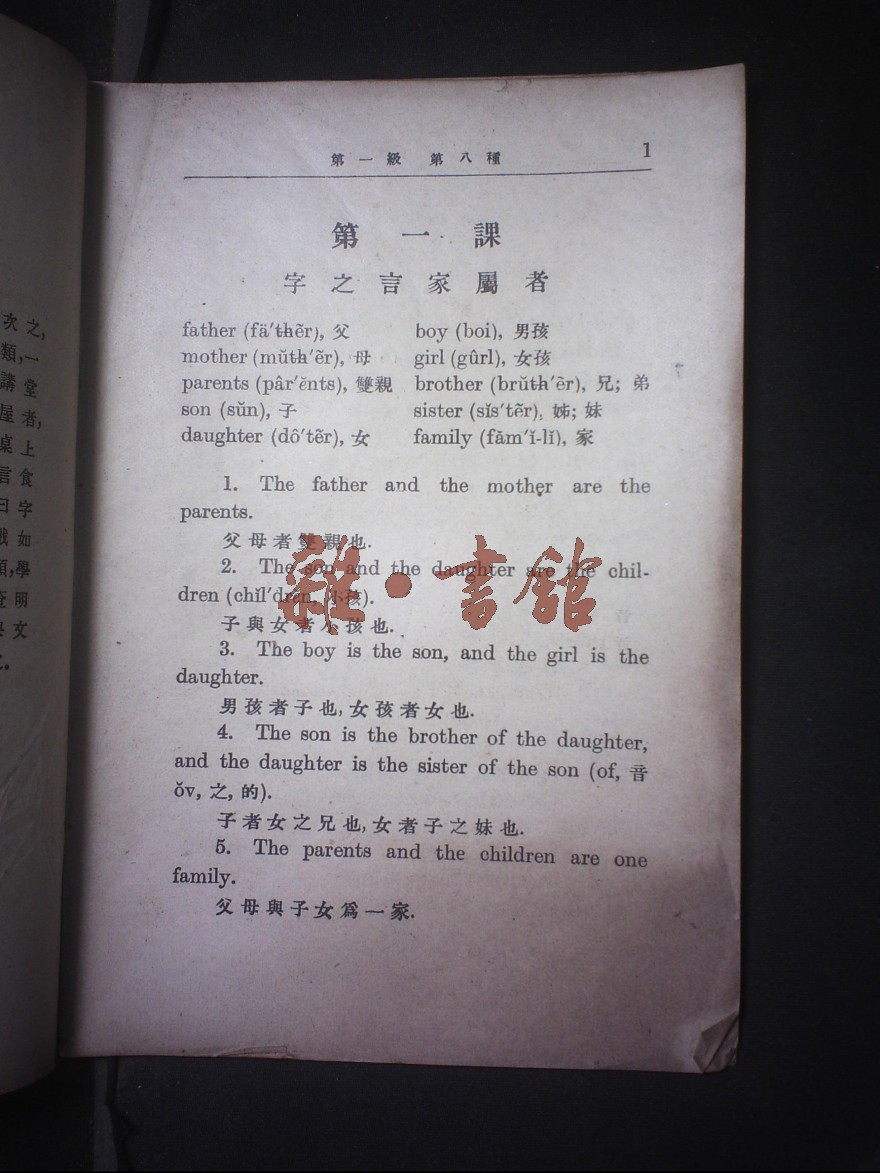 次之,
類,一
講堂
屋者,
桌上
言食
曰字
戲如
類,學
查明
文
第一級 第八種 1
第一課
字之言家屬者
father (fä′thẽr), 父 boy (boi), 男孩
mother (mŭth′ẽr), 母 girl (gûrl), 女孩
parents (pâr′ĕnts), 雙親 brother (brŭth′ẽr), 兄; 弟
son (sŭn), 子 sister (sĭs′tẽr), 姊; 妹
daughter (dô′tẽr), 女 family (făm′ĭ-lĭ), 家
1. The father and the mother are the
parents.
父母者雙親也.
2. The son and the daughter are the chil-
dren (chĭl′drĕn, 小孩).
子與女者小孩也.
3. The boy is the son, and the girl is the
daughter.
男孩者子也, 女孩者女也.
4. The son is the brother of the daughter,
and the daughter is the sister of the son (of, 音
ŏv, 之, 的).
子者女之兄也, 女者子之妹也.
5. The parents and the children are one
family.
父母與子女爲一家.
雜·書館